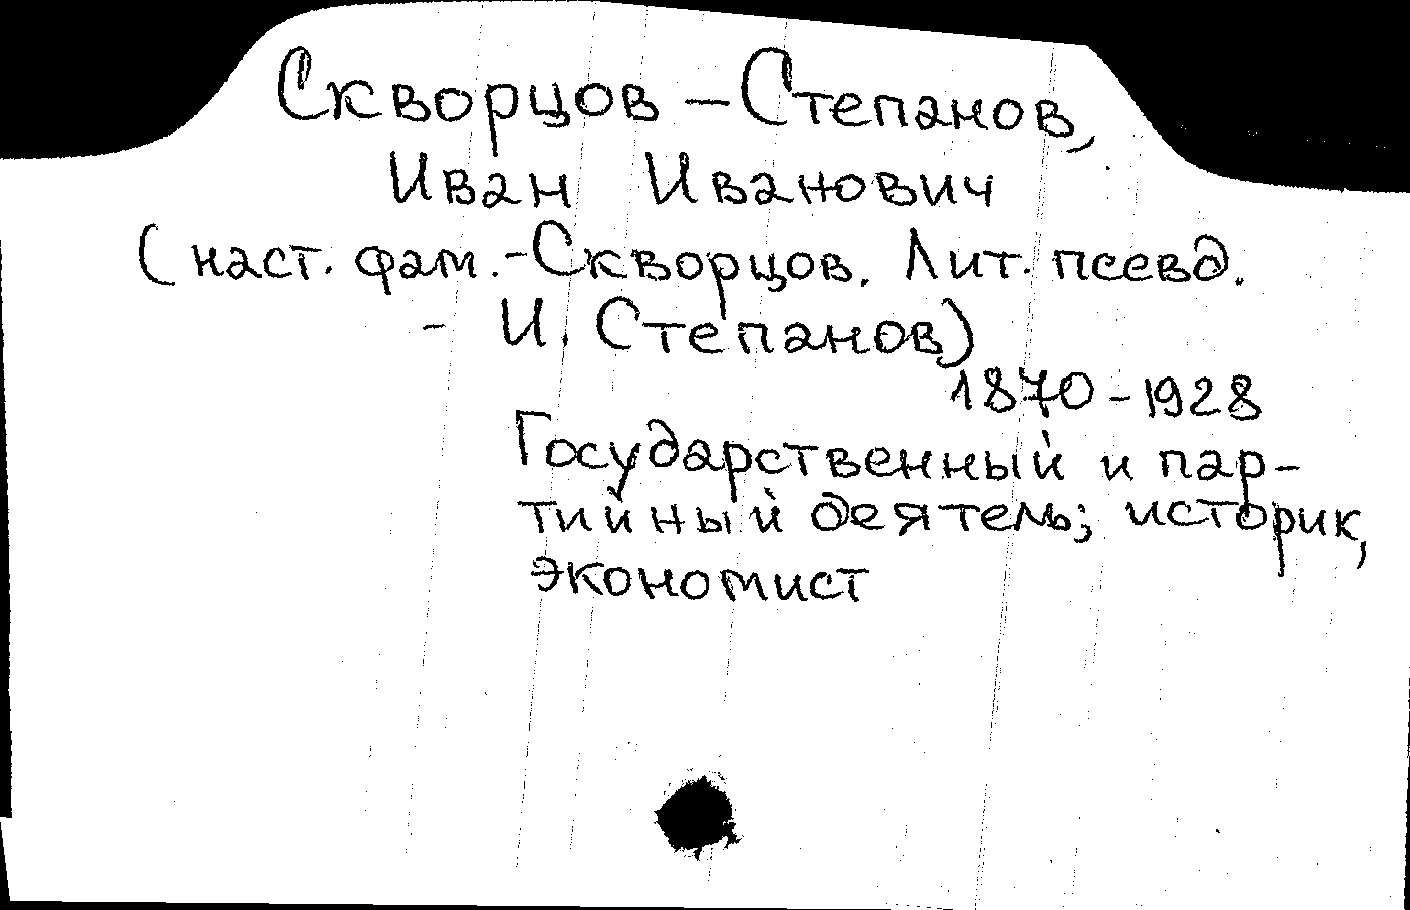 Скворцов – Степанов,
Иван Иванович
(наст. фам. - Скворцов. Лит. псевд.
- И. Степанов)
1870-1928
Государственный и пар-
тийный деятель; историк,
экономист